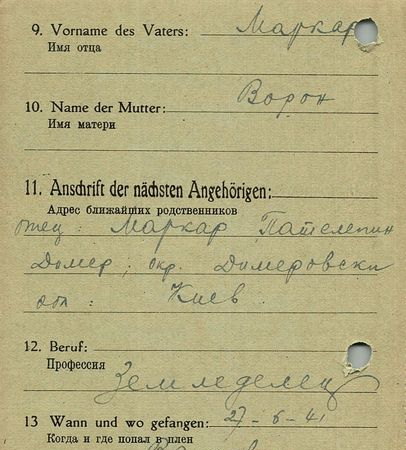 9. Vorname des Vaters: Маркар
Имя отца
10. Name der Mutter: Ворон
Имя матери
11. Anschrift der nächsten Angehörigen:
Адрес ближайших родственников
отец: Маркар Пателепин
Димер, окр. Димеровски
обл: Киев
12. Beruf:
Профессия
Земледелец
13 Wann und wo gefangen: 27-6-41
Когда и где попал в плен